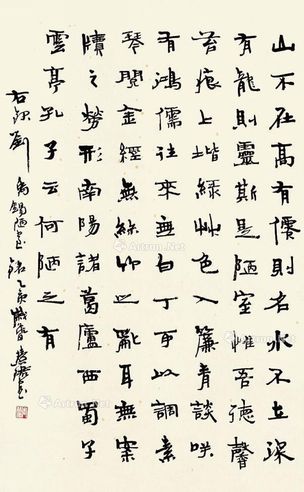 山不在高有僊則名水不在深
有龍則靈斯是陋室惟吾德馨
苔痕上堦綠艸色入簾青談咲
有鴻儒往來無白丁可以調素
琴閱金經無絲竹之亂耳無案
牘之勞形南陽諸葛廬西蜀子
雲亭孔子云何陋之有
右錄劉禹錫陋室銘乙亥歲
Artron.Net